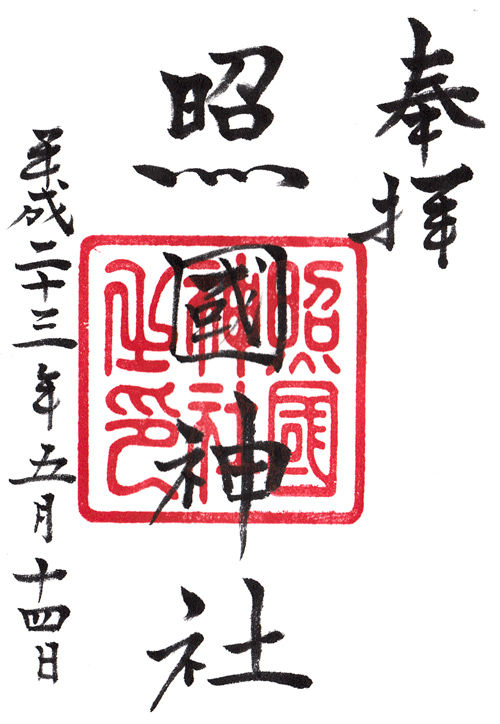 奉拝
照國神社
照国神社之印
平成二十三年五月十四日